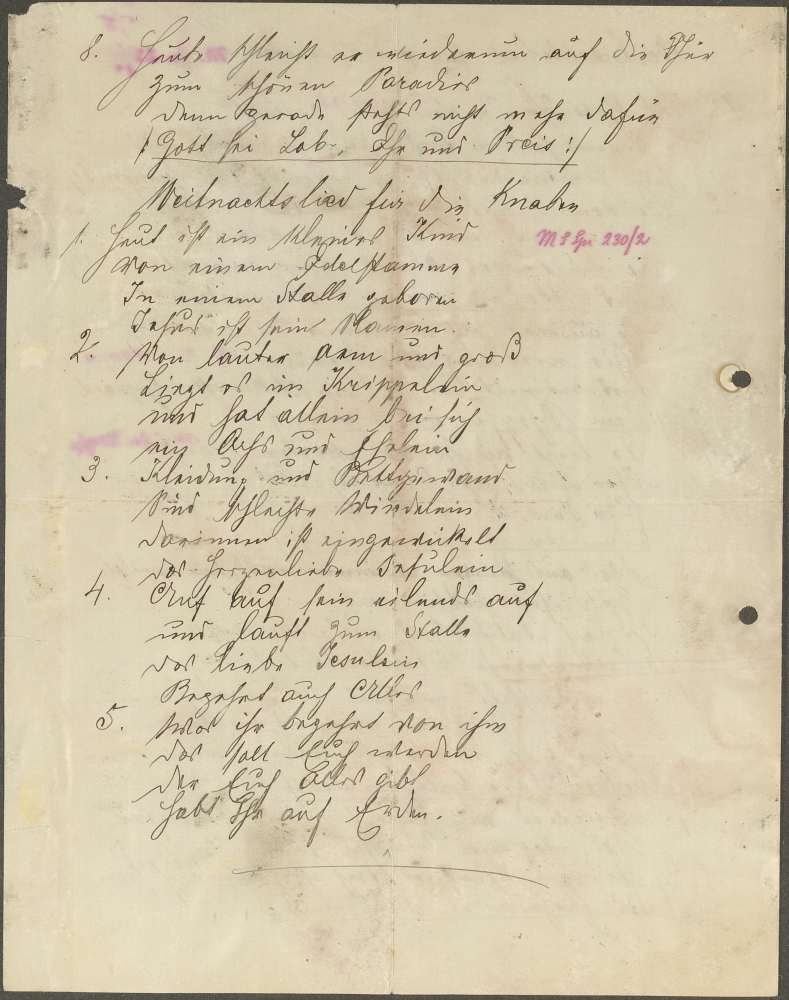 8. Heute schleußt er wiederum auf die Thür
zum schönen Paradies
denn gerade stehts nicht mehr dafür
/: Gott sei Lob, Ehr und Preis :/
Weihnachtslied für die Knaben
1. Heut ist ein kleines Kind
MS Spr 230/2
Von einem Edelstamme
In einem Stalle geboren
Jesus ist sein Namen.
2. Von lauter arm und groß
Liegt es im Krippelein
und hat allein bei sich
ein Ochs und Eselein
3. Kleidung und Bettgewand
Sind schlechte Windelein
darinnen ist eingewickelt
das herzenliebe Jesulein
4. Auf auf sein eilends auf
und lauft zum Stalle
das liebe Jesulein
Begehrt auch Alles
5. Was ihr begehrt von ihm
das soll Euch werden
der Euch Alles gibt
habt Ihr auf Erden.